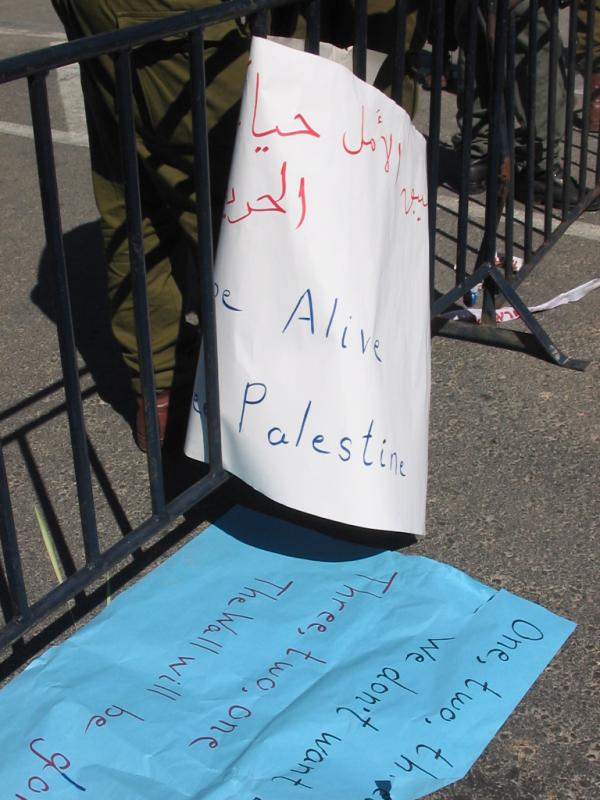 الأمل
be Alive
Palestine
One, two, th
We don't want
Three, two, one
The Wall will be gon